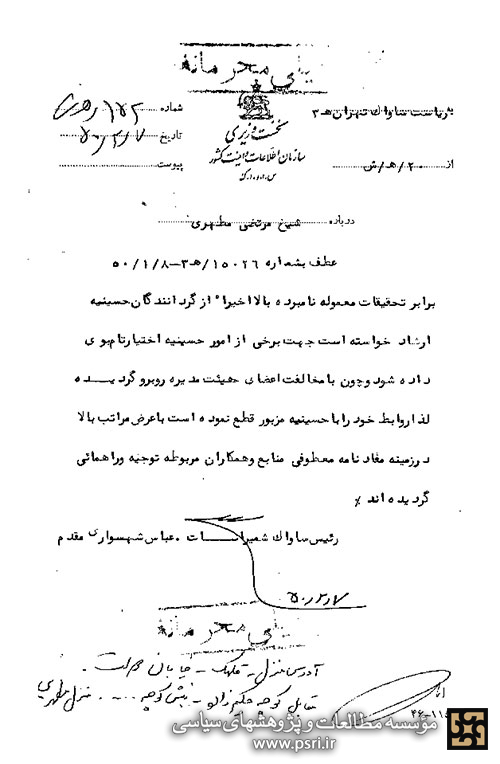 خیلی محرمانه
به ریاست ساواک تهران ۳هـ
شماره
تاریخ ۵۰/۲/۷
نخست وزیری
سازمان اطلاعات و امنیت کشور
از ۲۰/هـ/ش
پیوست
درباره شیخ مرتضی مطهری
عطف بشماره ۱۵۰۲۶/هـ۳–۵۰/۱/۸
برابر تحقیقات معموله نامبرده بالا اخیرا" از گردانندگان حسینیه
ارشاد خواسته است جهت برخی از امور حسینیه اختیار تام بوی
داده شود و چون با مخالفت اعضای هیئت مدیره روبرو گردیده
لذا روابط خود را با حسینیه مزبور قطع نموده است با عرض مراتب بالا
در زمینه مفاد نامه معطوفی منابع و همکاران مربوطه توجیه و راهنمائی
گردیده اند ٪
رئیس ساواک شمیرانات . عباس شهسواری مقدم
۵۰/۲/۷
خیلی محرمانه
آدرس منزل - قلهک - خیابان دولت .
مقابل کوچه - نبش کوچه .... منزل مطهری
مؤسسه مطالعات و پژوهشهای سیاسی
www.psri.ir